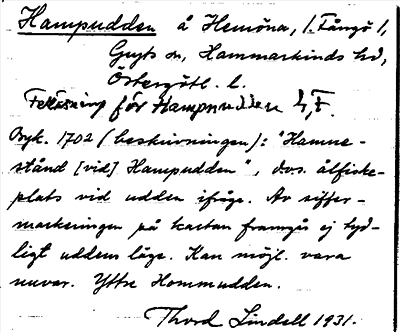 Hampudden å Hemöna, /. Fångö /,
Gryts sn, Hammarkinds hd,
Östergötl. l.
för Hampudden
Bryk. 1702 (beskrivningen): "Hamne-
stånd [vid] Hampudden", dvs. ålfiske-
plats vid udden ifråga. Av siffer-
markeringen på kartan framgår ej tyd-
ligt uddens läge. Kan möjl. vara
nuvar. Yttre Hommudden.
Thord Lindell 1931.